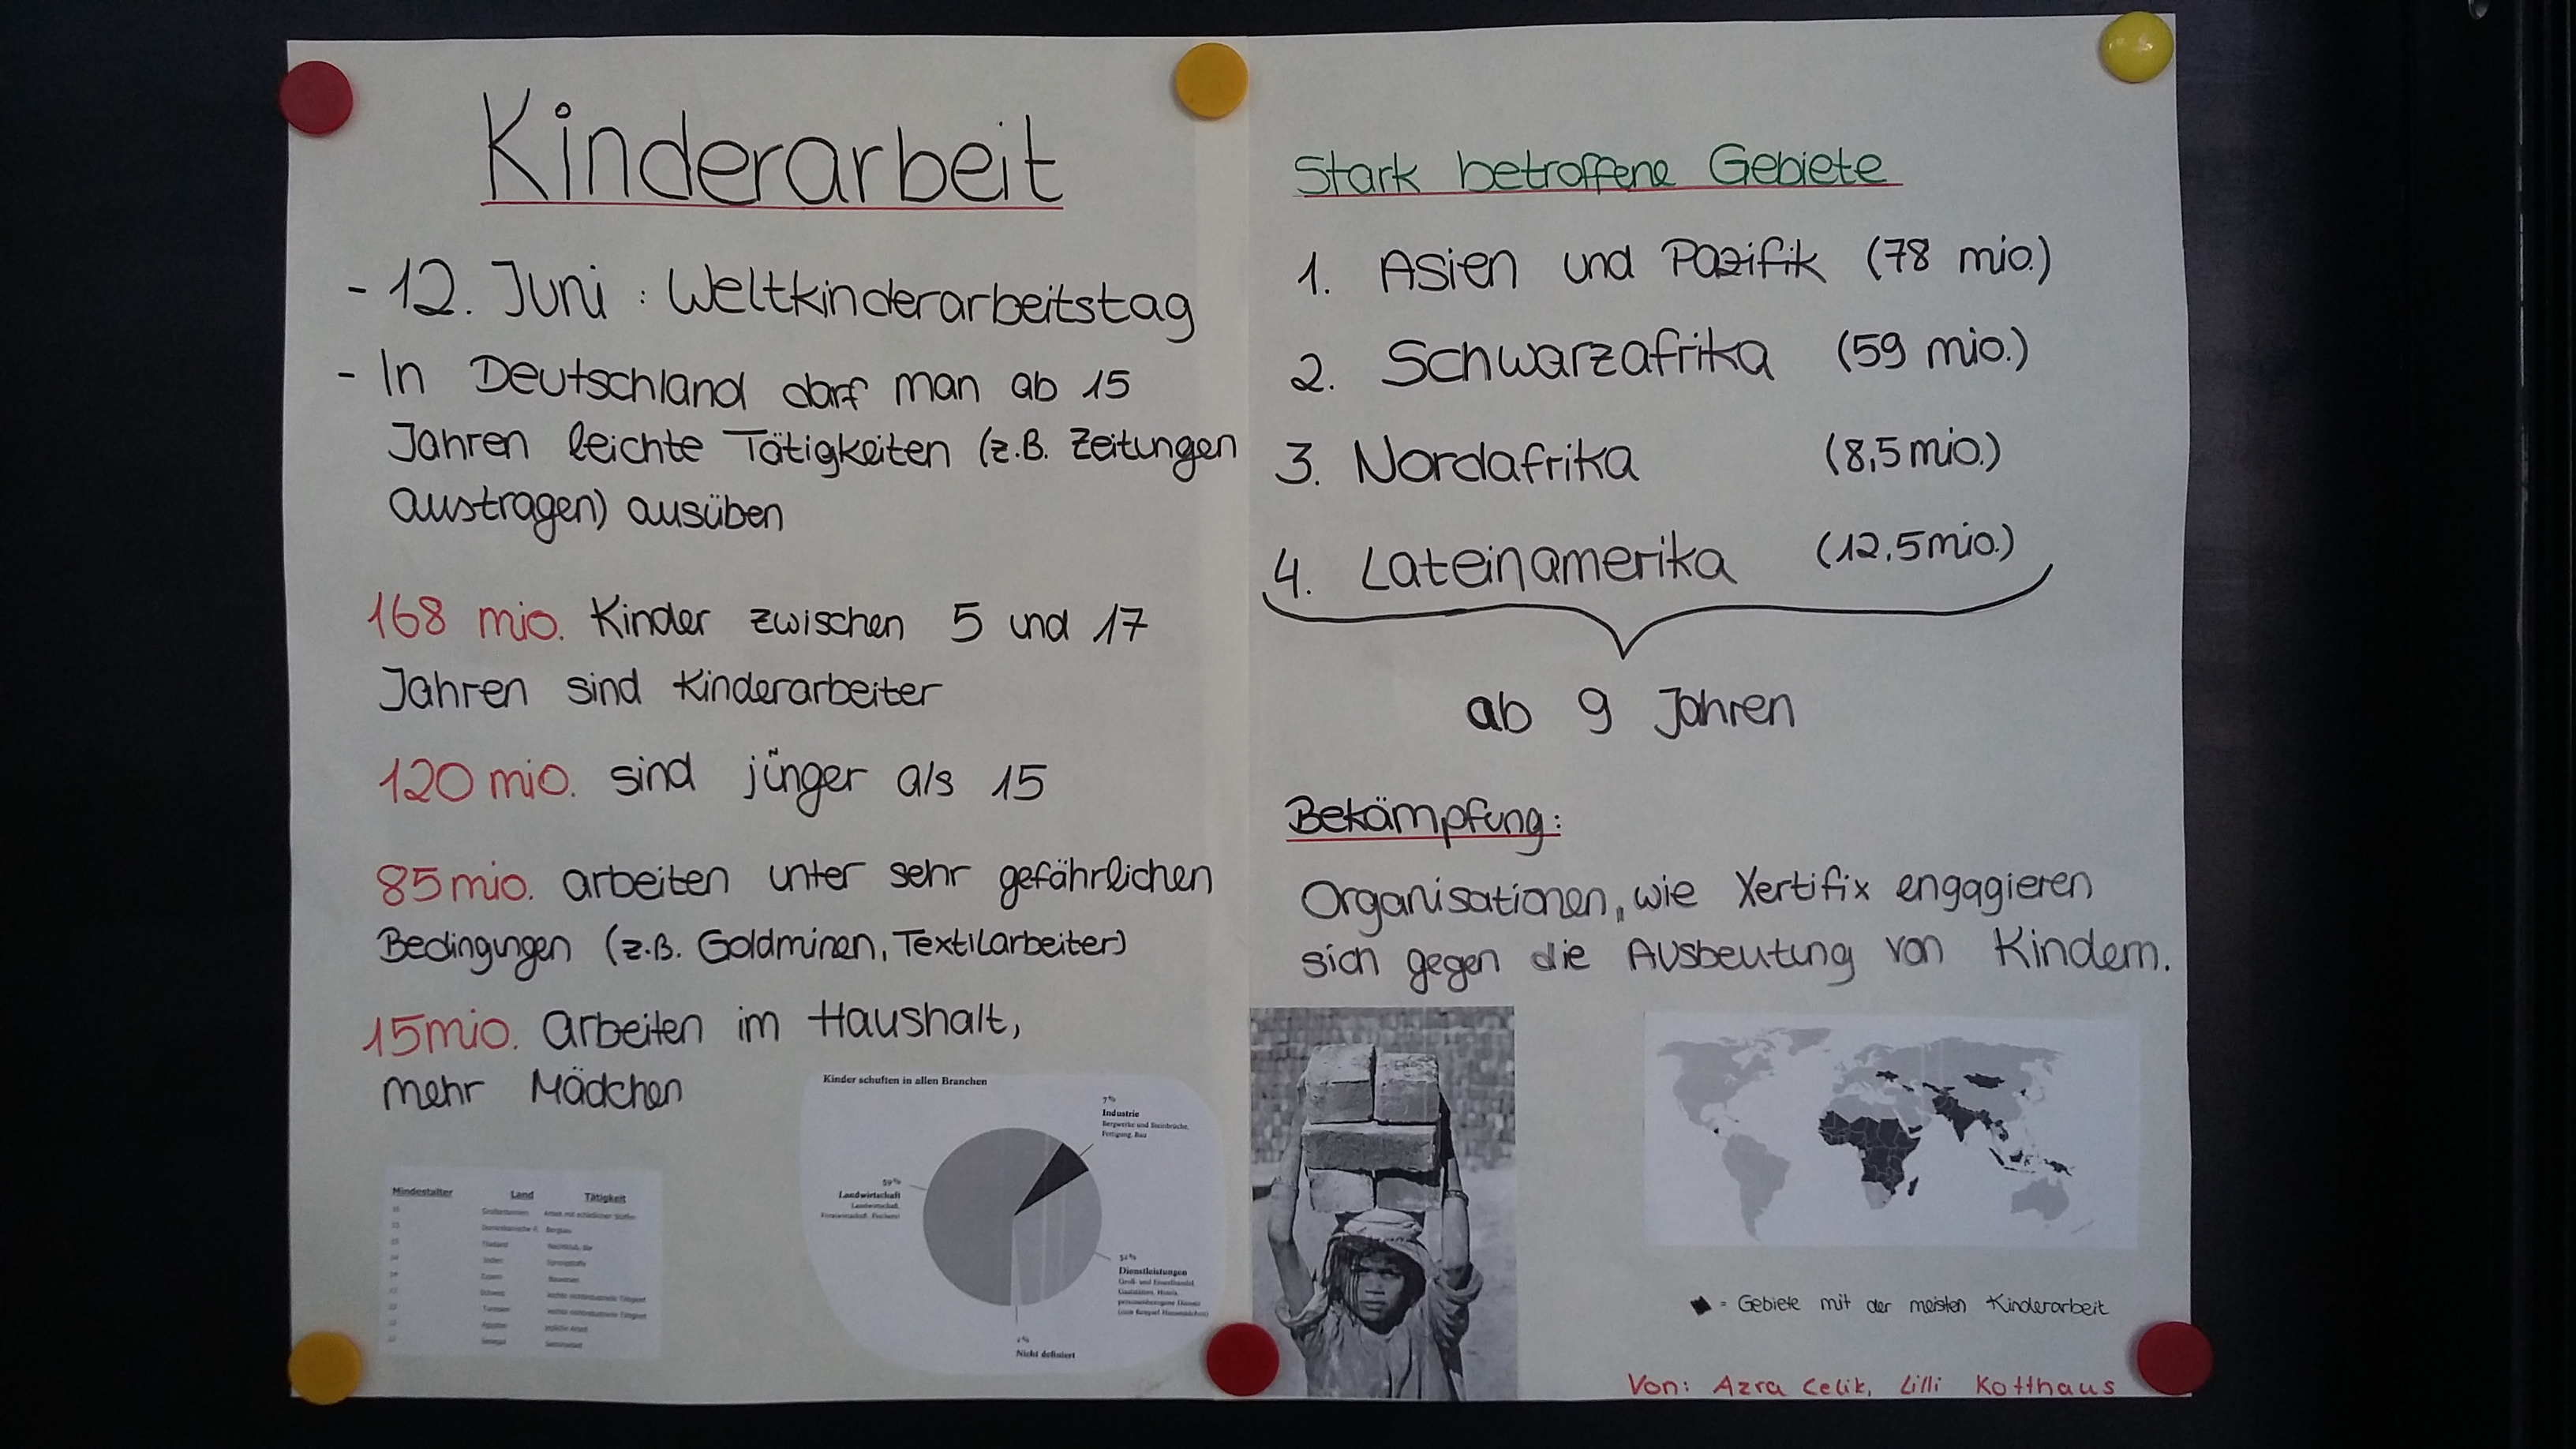 Kinderarbeit
- 12. Juni : Weltkinderarbeitstag
- In Deutschland darf man ab 15
Jahren leichte Tätigkeiten (z.B. Zeitungen
austragen) ausüben
168 mio. Kinder zwischen 5 und 17
Jahren sind Kinderarbeiter
120 mio. sind jünger als 15
85 mio. arbeiten unter sehr gefährlichen
Bedingungen (z.B. Goldminen, Textilarbeiter)
15 mio. arbeiten im Haushalt,
mehr Mädchen
Mindestalter Land Tätigkeit
Großbritannien Arbeit mit schädlichen Stoffen
Dominikanische R. Bergbau
Thailand Nachtklub, Bar
Indien Sprengstoffe
Zypern
Schweiz leichte nichtindustrielle Tätigkeit
Tunesien leichte nichtindustrielle Tätigkeit
Ägypten jegliche Arbeit
Senegal
Kinder schuften in allen Branchen
7%
Industrie
Bergwerke und Steinbrüche,
Fertigung, Bau
59%
Landwirtschaft
Landwirtschaft,
Forstwirtschaft, Fischerei
Dienstleistungen
Groß- und Einzelhandel
Gaststätten, Hotels,
personenbezogene Dienste
(zum Beispiel Hausmädchen)
Nicht definiert
Stark betroffene Gebiete
1. Asien und Pazifik (78 mio.)
2. Schwarzafrika (59 mio.)
3. Nordafrika (8,5 mio.)
4. Lateinamerika (12,5 mio.)
ab 9 Jahren
Bekämpfung:
Organisationen, wie Xertifix engagieren
sich gegen die Ausbeutung von Kindern.
= Gebiete mit der meisten Kinderarbeit
Von: Azra Celik, Lilli Kotthaus